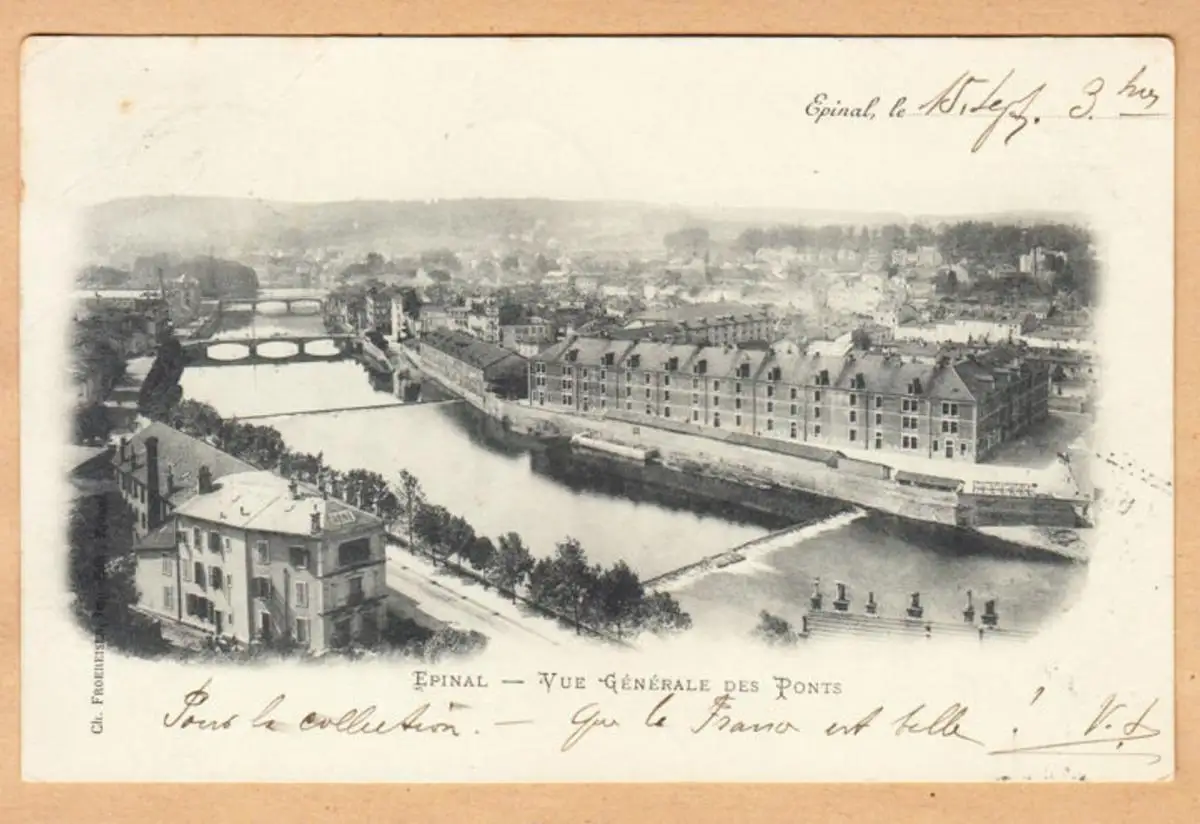 Epinal, le 15. Sept. 3 hrs
EPINAL — VUE GÉNÉRALE DES PONTS
Pour la collection. — Que la France est belle !
Ch. FROEREISEN